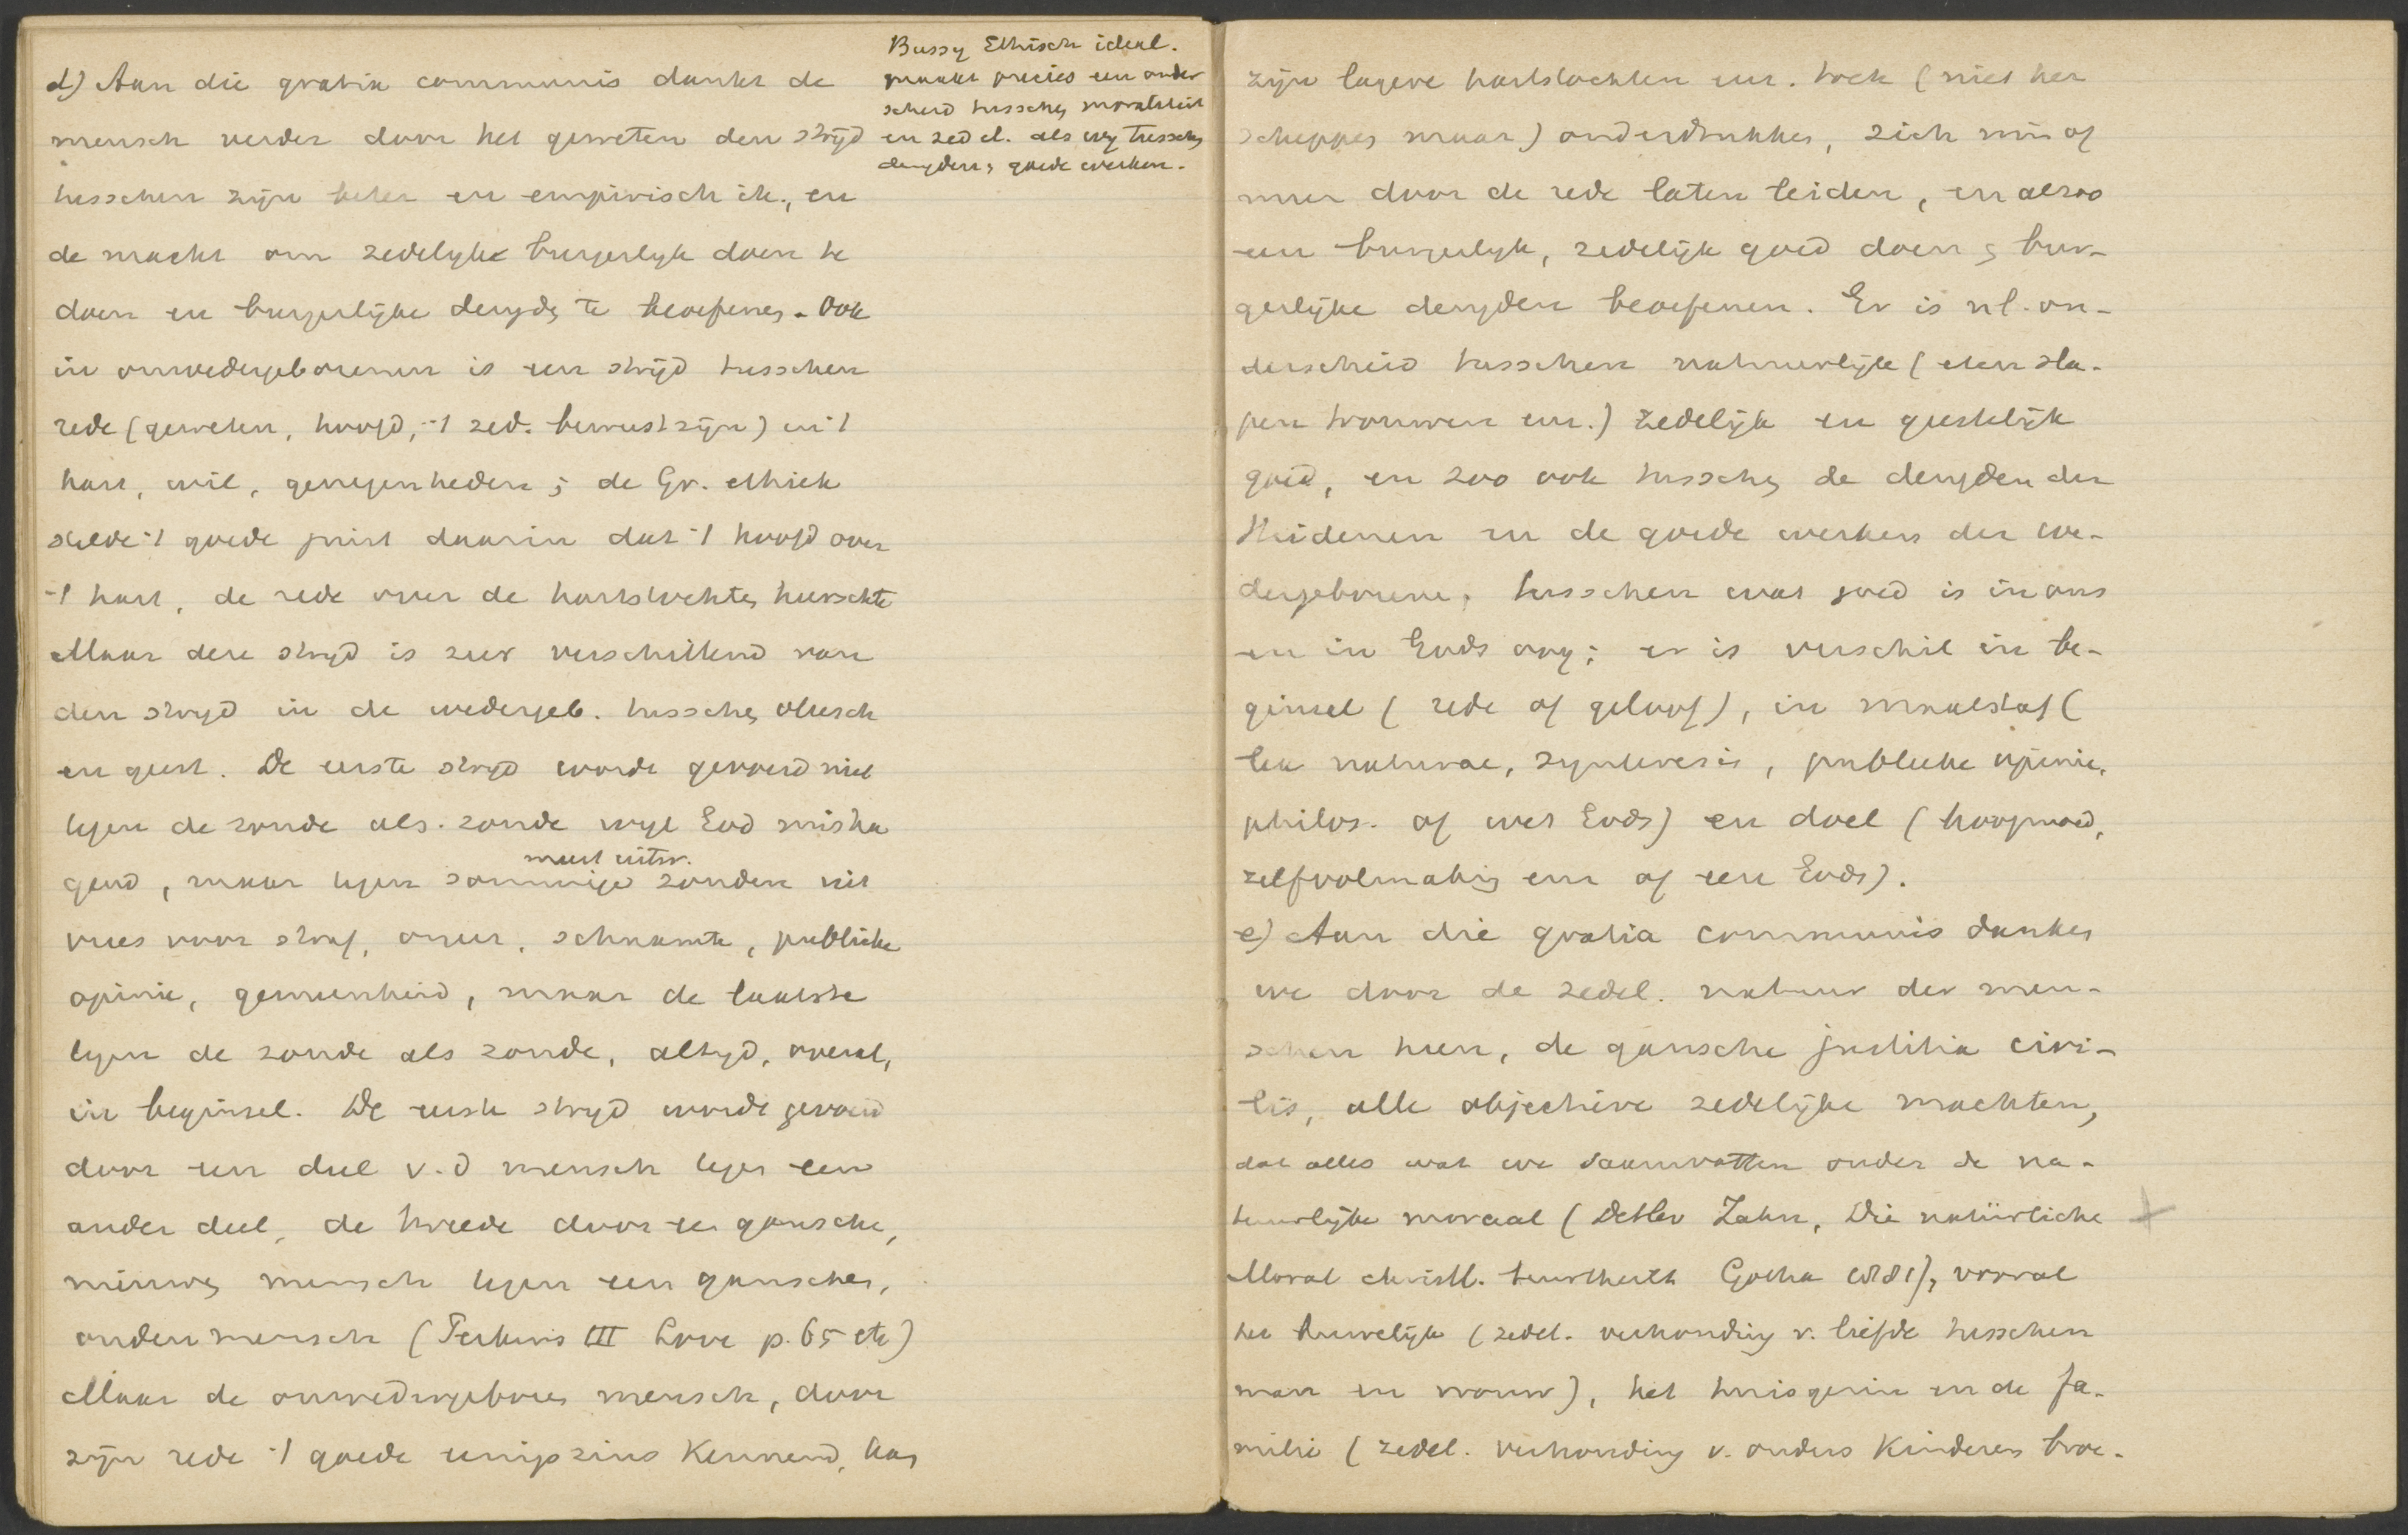 d) Aan die gratia communis dankt de
mensch verder door het geweten den strijd
tusschen zijn beter en empirisch ik, en
de macht om zedelijke burgerlijk doen te
doen en burgerlijke deugden te beoefenen. Ook
in onwedergeborenen is een strijd tusschen
rede (geweten, hoofd, 't zed. bewustzijn) en 't
hart, wil, genegenheden; de Gr. ethiek
stelde 't goede juist daarin dat 't hoofd over
't hart, de rede over de hartstochten heerschte
Maar deze strijd is zeer verschillend van
den strijd in de wedergeb. tusschen vleesch
en geest. De eerste strijd wordt gevoerd niet
tegen de zonde als zonde wijl God misha
gend, maar tegen sommige zonden uit
meest uitw.
vrees voor straf, oneer, schaamte, publieke
opinie, gemeenheid, maar de laatste
tegen de zonde als zonde, altijd, overal,
in beginsel. De eerste strijd wordt gevoerd
door een deel v. d mensch tegen een
ander deel, de tweede door een gansche,
nieuwen mensch tegen een ganschen,
ouden mensch (Perkins III Love p. 65 etc)
Maar de onwedergeboren mensch, door
zijn rede 't goede eenigszins kennend, kan
Bussy Ethisch ideal.
maakt precies een onder
scheid tusschen moraliteit
en zedel. als wij tusschen
deugden, goede werken.
zijn lagere hartstochten enz. ook (niet her
scheppen maar) onderdrukken, zich min of
meer door de rede laten leiden, en alzoo
een burgerlijk, zedelijk goed doen, bur-
gerlijke deugden beoefenen. Er is nl. on-
derscheid tusschen natuurlijk (eten sla-
pen trouwen enz.) zedelijk en geestelijk
goed, en zoo ook tusschen de deugden der
Heidenen en de goede werken der we-
dergeborene, tusschen wat goed is in ons
en in Gods oog; er is verschil in be-
ginsel (rede of geloof), in maatstaf (
lex naturae, synteresis, publieke opinie,
philos. of wet Gods) en doel (hoogmoed,
zelfvolmaking enz of eere Gods).
e) Aan die gratia communis danken
we door de zedel. natuur der men-
schen heen, de gansche justitia civi-
lis, alle objective zedelijke machten,
dat alles wat we saamvatten onder de na-
tuurlijke moraal (Detlev Zahn, Die natürliche
Moral christl. beurtheilt Gotha 1881), vooral
het huwelijk (zedel. verhouding v. liefde tusschen
man en vrouw), het huisgezin en de fa-
milie (zedel. verhouding v. ouders kinderen broe-